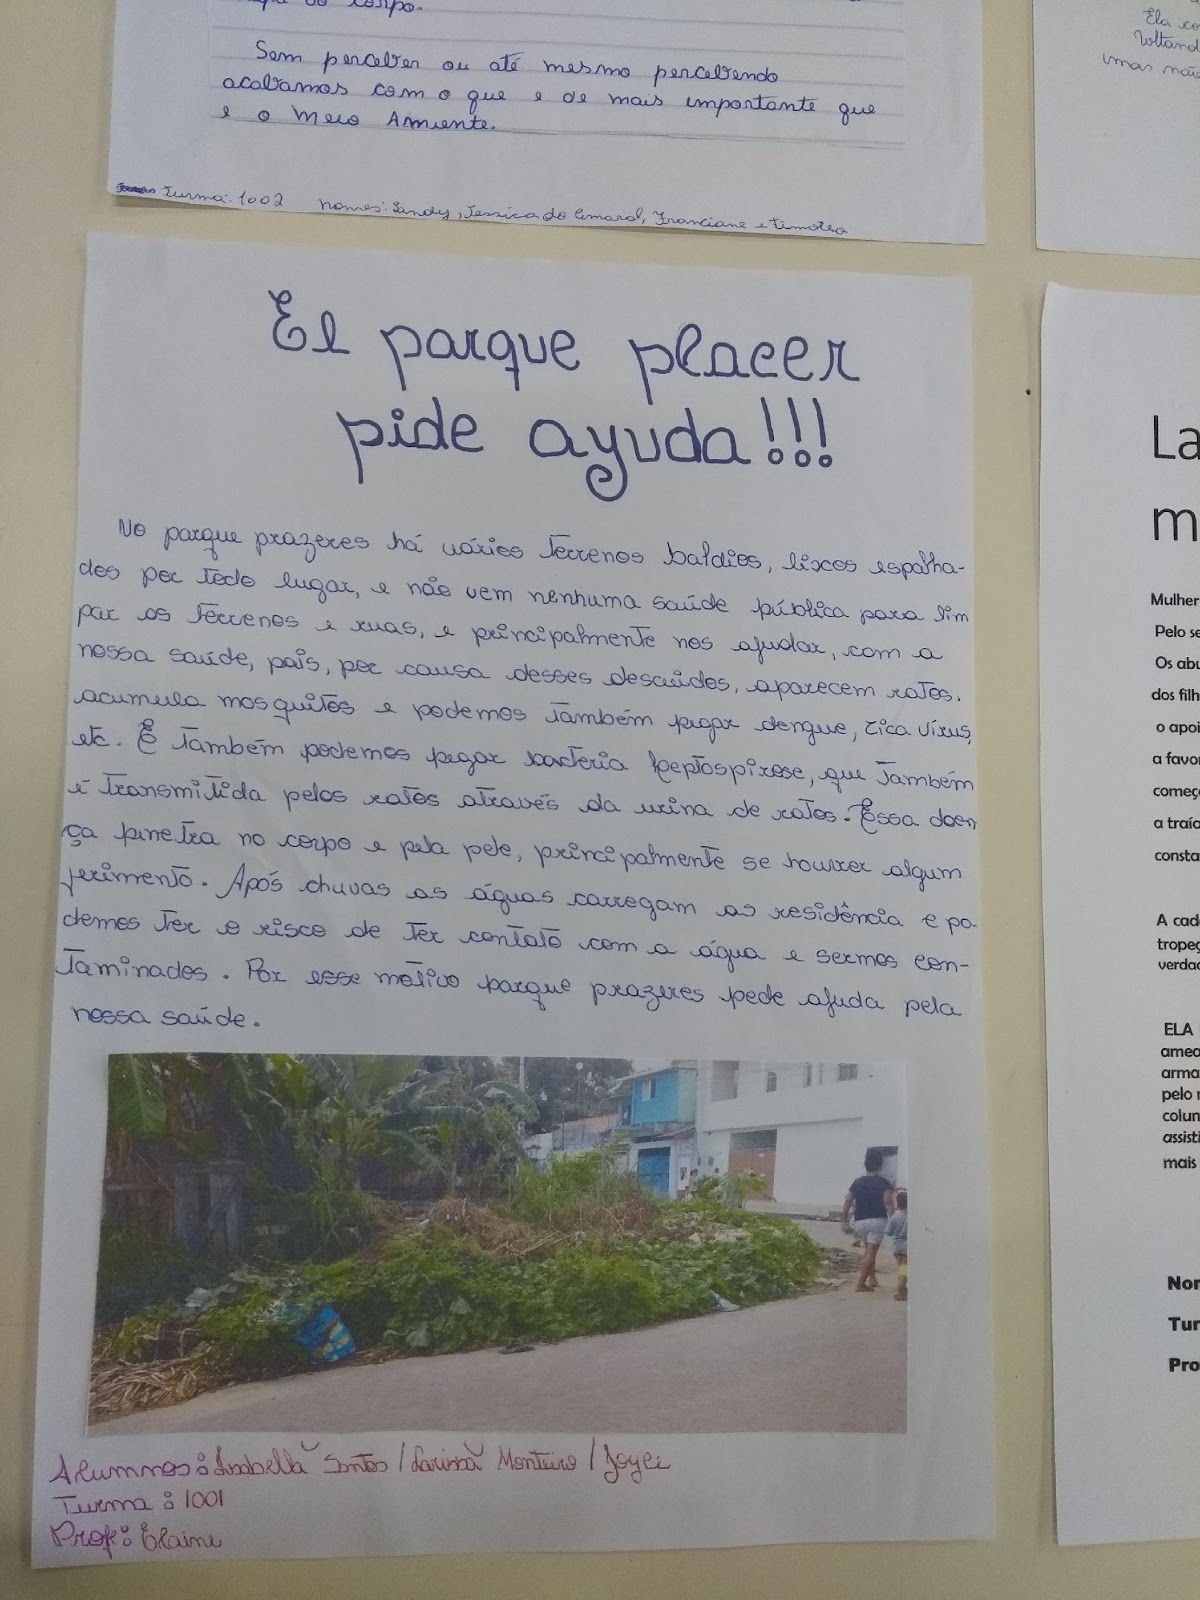 do corpo.
Sem perceber ou até mesmo percebendo
acabamos com o que e de mais importante que
e o Meio Amiente.
Turma: 1002 nomes: Sandy, Jessica do Amaral, Franciane e timoteo
Ela co
Voltand
imas mãe
El parque placer
pide ayuda!!!
No parque prazeres há vários terrenos baldios, lixos espalha-
dos por todo lugar, e não vem nenhuma saúde pública para lim
par os terrenos e ruas, e principalmente nos ajudar, com a
nossa saúde, pais, por causa desses descuidos, aparecem ratos.
acumula mosquitos e podemos também pegar dengue, zica vírus,
etc. E também podemos pegar bacteria leptospirose, que também
é transmitida pelos ratos através da urina de ratos. Essa doen
ça pinetra no corpo e pela pele, principalmente se houver algum
ferimento. Após chuvas as águas carregam as residência e po-
demos ter o risco de ter contato com a água e sermos con-
taminados. Por esse motivo parque prazeres pede ajuda pela
nossa saúde.
Alumnos: Isabella Santos / Larissa Monteiro / Joyce
Turma: 1001
Prof: Elaine
La
m
Mulher
Pelo se
Os abu
dos filh
o apoi
a favor
começ
a traío
consta
A cad
tropeç
verdad
ELA
amea
arma
pelo r
colun
assisti
mais
Nor
Tur
Pro